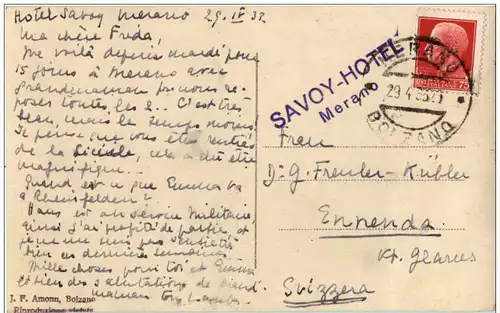 Hotel Savoy Merano 29. IV 35.
Ma chère Frida,
Me voilà depuis mardi pour
15 jours à Merano avec
Grandmaman pour nous re-
poser toutes les 2. C'est très
beau, mais le temps moins.
Je pense que vous êtes rentrés
de la Sicile, cela a dû être
magnifique.
Quand est ce que Emma va
à Rheinfelden?
Hans est au service militaire,
ainsi j'ai profité de partir, et
je ne me suis pas
bien ces dernières semaines
Mille choses pour toi et Emma
et bien des salutations de Grand
maman ton
J. F. Amonn, Bolzano
Riproduzione vietata
SAVOY-HOTEL
Merano
MERANO
29.4.35
BOLZANO
75
Frau
Dr. G. Freuler-Kübler
Ennenda
Kt. Glarus
Svizzera